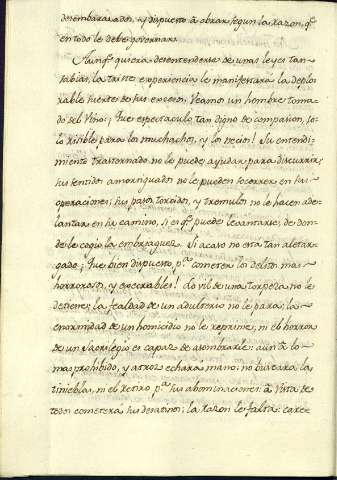 desembarazados, y dispuesto â obrar segun la razon, qᵉ
en todo le debe governar.
Aunqᵉ quiera desentenderse de unas leyes tan
sabias, la triste experiencia le manifestará la deplo-
rable suerte de sus excesos. Veamos un hombre toma-
do del Vino: ¡que espectaculo tan digno de compasion, so-
lo risible para los muchachos, y los necios! Su entendi-
miento trastornado no le puede ayudar para discurrir,
sus sentidos amortiguados no le pueden socorrer en sus
operaciones; sus pasos torcidos, y tremulos no le hacen ade-
lantar en su camino, si es qᵉ puede levantarse de don-
de le cogio la embriaguez. Si acaso no esta tan aletar-
gado ¡que bien dispuesto pᵃ cometer los delitos mas
horrorosos, y execrables! Lo vil de una torpeza no le
detiene; la fealdad de un adulterio no le para; la
enormidad de un homicidio no le reprime; ni el horror
de un Sacrilegio es capaz de asombrarle: aun â lo
mas prohibido, y atroz echará mano: no buscará las
tinieblas, ni el retiro pᵃ sus abominaciones: â vista de
todos cometera sus desatinos: la razon le falta: carece